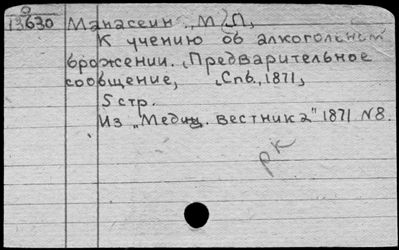 O
13630 Манасеин, М/П,
К учению об алкогольном
брожении. Предварительное
сообщение, Спб., 1871,
5 стр.
Из "Медиц. вестника" 1871 N8.
рк